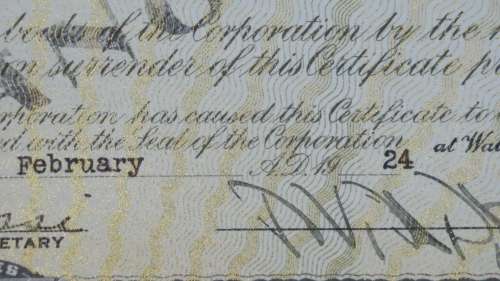 books of the Corporation by the
on surrender of this Certificate
Corporation has caused this Certificate to
ed with the Seal of the Corporation at Wat
February A.D. 19 24
ETARY